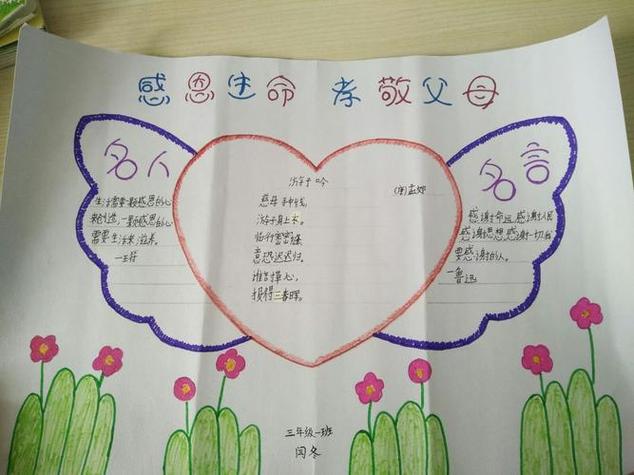 感恩生命 孝敬父母
名人
生活需要一颗感恩的心
来创造,一颗感恩的心
需要生活来滋养。
—王符
游子吟
(唐)孟郊
慈母手中线,
游子身上衣。
临行密密缝
意恐迟迟归。
谁言寸草心,
报得三春晖。
名言
感谢命运,感谢人民
感谢思想,感谢一切我
要感谢的人。
—鲁迅
三年级一班
闫冬